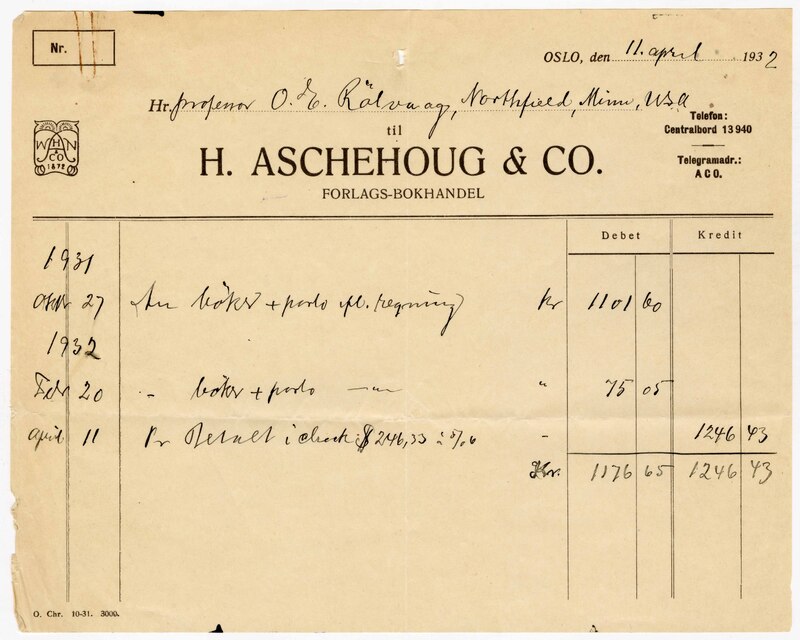 Nr.
OSLO, den 11. april 1932
Hr. professor O. E. Rölvaag, Northfield, Minn, USA.
til
Telefon:
Centralbord 13 940
Telegramadr.:
ACO.
WHN
& CO
1872
H. ASCHEHOUG & CO.
FORLAGS-BOKHANDEL
Debet Kredit
1931
Oktbr 27 An böker + porto ifl. regning Kr 1101 60
1932
Febr 20 " böker + porto —"— " 75 05
April 11 Pr Betalt i check $ 246,33 à 5/06 " 1246 43
Kr. 1176 65 1246 43
O. Chr. 10-31. 3000.